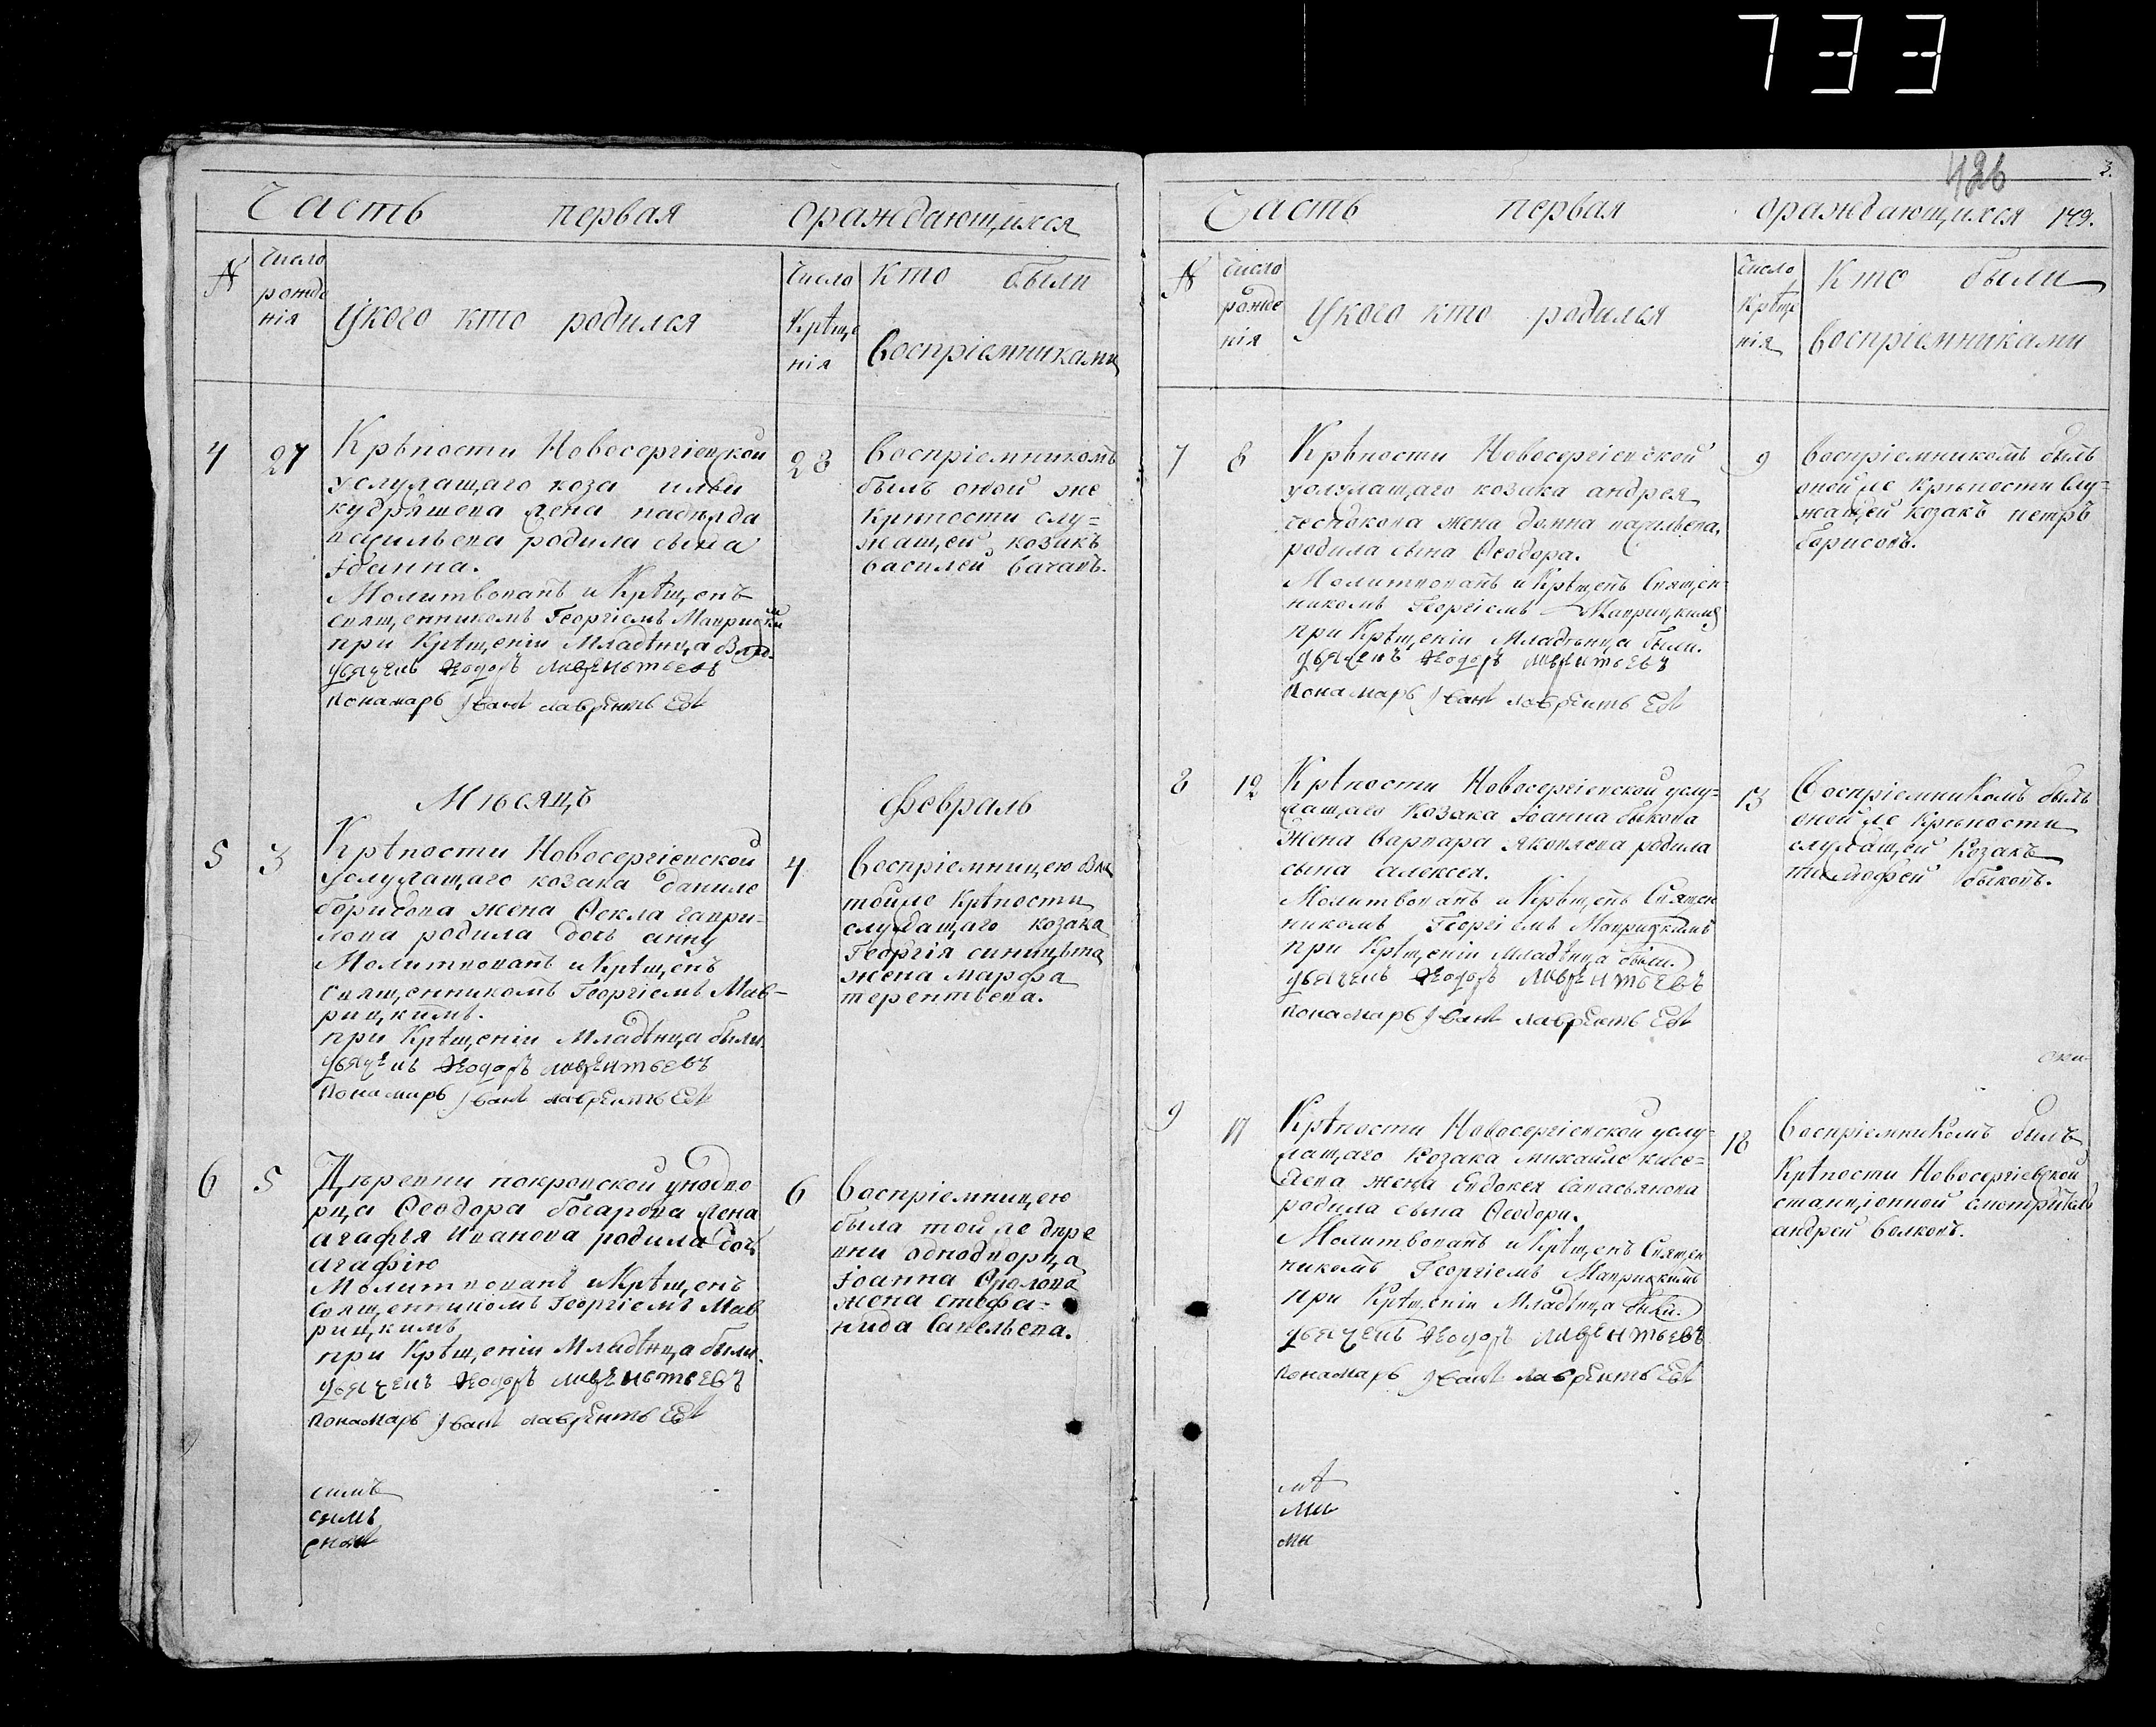 733
426
3.
Часть первая ораждающихся
N
число
рожде
нія
Укого кто родился
Число
Крѣще
нія
кто были
воспріемниками
4 27
Крѣпости Новосергіевской
услулащаго коза ильи
кудряшева лена надѣлда
васильева родила сына
Іоанна.
Молитвованъ и Крѣщенъ
священникомъ Георгіемъ Маврицким
при Крѣщеніи Младѣнца
дьячекъ Ѳеодоръ лаврентьевъ
понамарь Іванъ лаврентьевъ
28
Воспріемникомъ
былъ оной же
Крѣпости слу=
жащей козакъ
василей
Мѣсяцъ Февраль
5 3
Крѣпости Новосергіевской
услулащаго козака данило
борисова жена Ѳекла гаври=
лова родила дочь анну
Молитвованъ и Крѣщенъ
священникомъ Георгіемъ Мав-
рицкимъ.
при Крѣщеніи Младѣнца были.
дьячекъ Ѳеодоръ лаврентьевъ
понамарь Іванъ лаврентьевъ
4
Воспріемницею
тойле Крѣпости
слулащаго козака
Георгія синицына
жена марфа
терентьева.
6 5
Дѣревни покровской уводно
рца Ѳеодора лена
агафья Иванова родила дочь
агафію
Молитвованъ и Крѣщенъ
Священникомъ Георгіемъ Мав
рицкимъ
при Крѣщеніи Младѣнца были.
дьячекъ Ѳеодоръ лаврентьевъ
понамарь Іванъ лаврентьевъ
6
Воспріемницею
была тойле дѣре
вни однодворца
Іоанна
жена стефа=
нида Савельева.
Часть первая ораждающихся 149.
N
число
рожде
нія
Укого кто родился
Число
Крѣще
нія
Кто были
воспріемниками
7 8
Крѣпости Новосергіевской
услулащаго козака андрея
чеснокова жена домна васильева.
родила сына Ѳеодора.
Молитвованъ и Крѣщенъ Священ-
никомъ Георгіемъ Маврицкимъ
при Крѣщеніи Младѣнца были.
дьячекъ Ѳеодоръ лаврентьевъ
понамарь Іванъ лаврентьевъ
9
Воспріемникомъ былъ
оной ле Крѣпости Слу=
жащей козакъ петръ
борисовъ.
8 12
Крѣпости Новосергіевской услу=
лащаго Козака Іоанна быкова
жена варвара яковлева родила
сына алексея.
Молитвованъ и Крѣщенъ Священ
никомъ Георгіемъ Маврицкимъ
при Крѣщеніи младѣнца были.
дьячекъ Ѳеодоръ лаврентьевъ
понамарь Іванъ лаврентьевъ
13
Воспріемникомъ былъ
оной ле Крѣпости
слулащей Козакъ
тимофей быковъ.
9 17
Крѣпости Новосергіевской услу=
лащаго Козака михайло кисе=
лева жена Евдокея Савастьянова
родила сына Ѳеодора.
Молитвованъ и Крѣщенъ Священ
никомъ Георгіемъ Маврицкимъ
при Крѣщеніи Младѣнца были.
дьячекъ Ѳеодоръ лаврентьевъ
понамарь Іванъ лаврентьевъ
18
Воспріемникомъ былъ
Крѣпости Новосергіевской
станціонной смотритель
андрей волковъ.